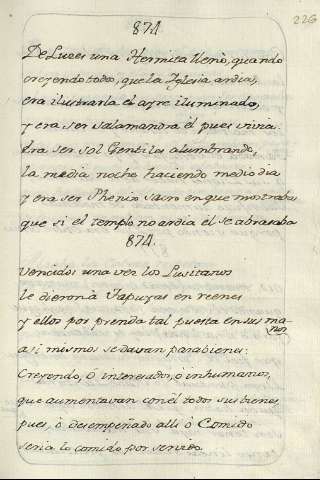 226
874
De Luzes una Hermita llenò, quando
creyendo todos, que la Iglesia ardia,
era ilustrarla el ayre iluminado,
y era ser salamandra el pues vivia.
Era ser sol Gentiles alumbrando,
la media noche haciendo medio dia
y era ser Phenix sacro en que mostraba
que si el templo no ardia el se abrasaba
874.
Vencidos una vez los Lusitanos
le dieron à Tapuyas en reenes
y ellos por prenda tal puesta en sus ma-
nos
asi mismos se davan parabienes:
Creyendo, ò interesados, ò inhumanos,
que aumentavan con èl todos sus bienes,
pues, ò desempeñado alli ò Comido
seria lo comido por servido.